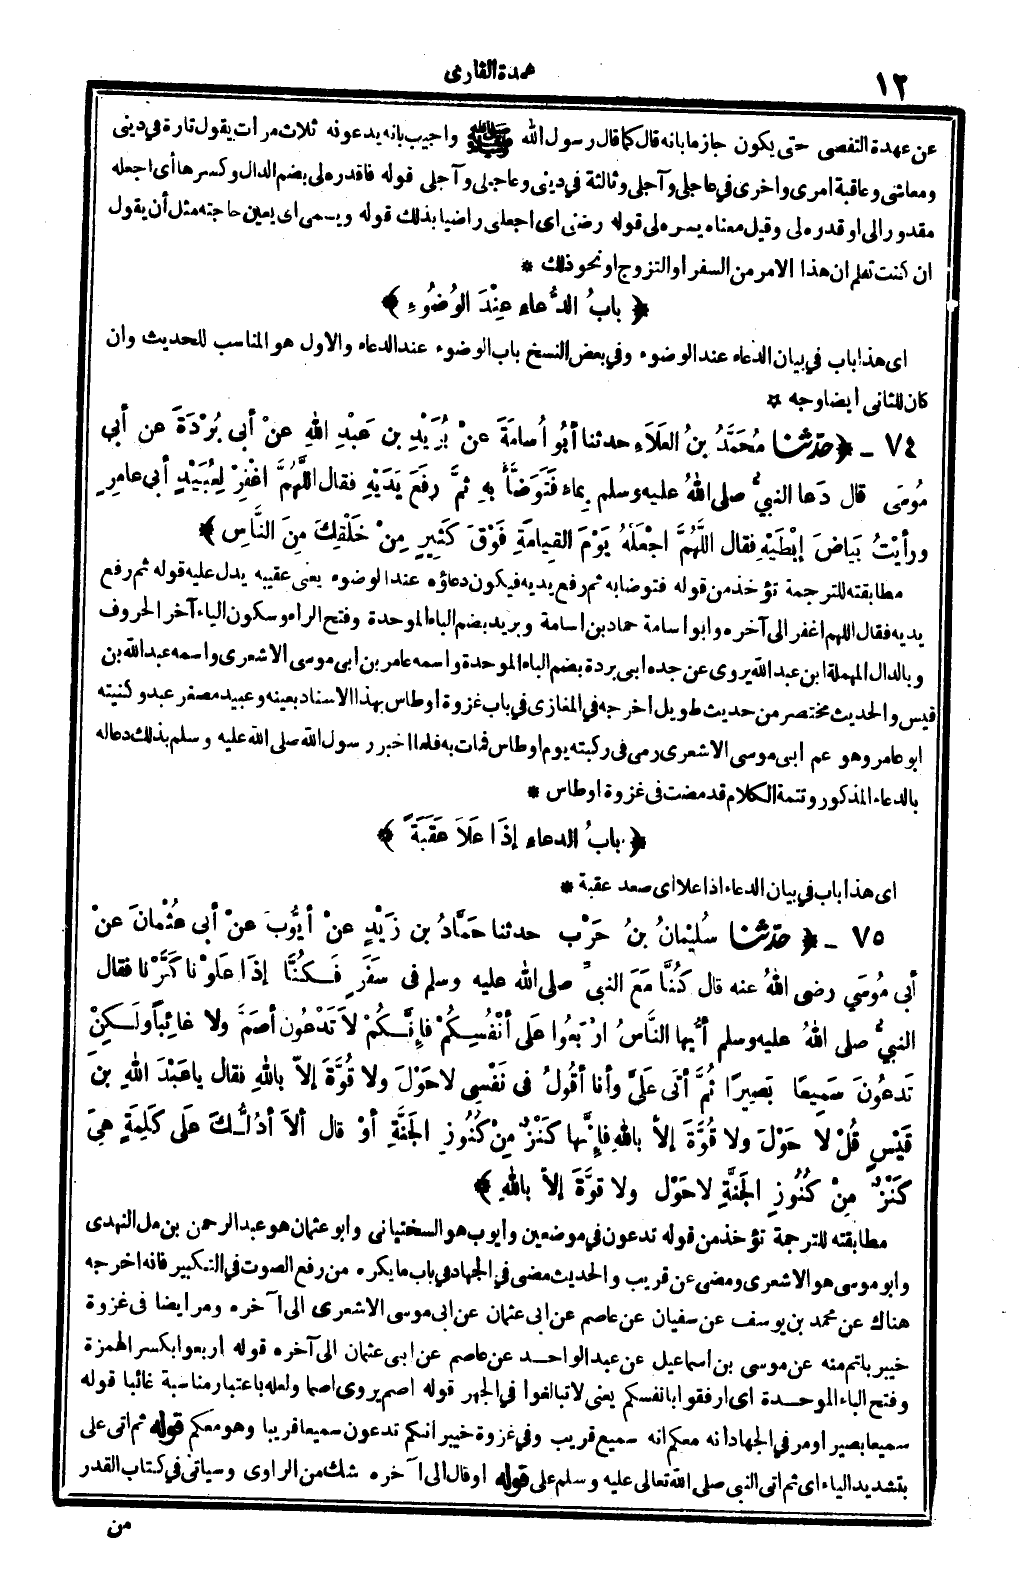 ١٢
عمدة القارى
عن عهدة التفصى حتى يكون جازما بانه قال كما قال رسول الله ﷺ واجيب بانه يدعو نه ثلاث مرات يقول تارة في دينى
ومعاشى وعاقبة امرى واخرى في عاجلى وآجلى وثالثة في دينى وعاجلى وآجلى قوله فاقدره لى بضم الدال وكسرها أى اجعله
مقدورالى او قدره لى وقيل معناه يسره لى قوله رضنى اى اجعلنى راضيا بذلك قوله ويسمى اى يعين حاجته مثل أن يقول
ان كنت تعلم ان هذا الامر من السفر او التزوج او نحو ذلك *
﴿ بابُ الدُّعاءِ عِنْدَ الوُضُوءِ ﴾
اى هذا باب في بيان الدعاء عند الوضوء وفي بعض النسخ باب الوضوء عند الدعاء والاول هو المناسب للحديث وان
كان للثانى ايضا وجه *
٧٤ - ﴿ حَدَّثَنَا مُحَمَّدُ بنُ العَلَاءِ حدثنا أبُو أُسامَةَ عنْ بُرَيْدِ بنِ عَبْدِ اللهِ عنْ أبي بُرْدَةَ عن أبي
مُوسَى قال دَعا النبيُّ صلى اللهُ عليه وسلم بِماء فَتَوَضَّأَ بِهِ ثمَّ رفَعَ يَدَيْهِ فقال اللَّهُمَّ اغْفِرْ لِعُبَيْدٍ أبي عامِرٍ
ورأيْتُ بَياضَ إبْطَيْهِ فقال اللَّهُمَّ اجْعَلْهُ يَوْمَ القِيامَةِ فَوْقَ كَثِيرٍ مِنْ خَلْقِكَ مِنَ النَّاسِ ﴾
مطابقته للترجمة تؤخذ من قوله فتوضا به ثم رفع يديه فيكون دعاؤه عند الوضوء يعنى عقيبه يدل عليه قوله ثم رفع
يديه فقال اللهم اغفر الى آخره وابو اسامة حماد بن اسامة وبريد بضم الباء الموحدة وفتح الراء وسكون الياء آخر الحروف
وبالدال المهملة ابن عبد الله يروى عن جده ابى بردة بضم الباء الموحدة واسمه عامر بن ابى موسى الاشعرى واسمه عبد الله بن
قيس والحديث مختصر من حديث طويل اخرجه في المغازى في باب غزوة اوطاس بهذا الاسناد بعينه وعبيد مصغر عبد وكنيته
ابو عامر وهو عم ابى موسى الاشعرى رمى فى ركبته يوم اوطاس فمات به فلما اخبر رسول الله صلى الله عليه وسلم بذلك دعاله
بالدعاء المذكور وتتمة الكلام قد مضت فى غزوة اوطاس *
﴿ بابُ الدعاءِ إذَا عَلاَ عَقَبَةً ﴾
اى هذا باب في بيان الدعاء اذا علا اى صعد عقبة *
٧٥ - ﴿ حَدَّثَنَا سُلَيْمانُ بنُ حَرْبٍ حدثنا حَمَّادُ بن زَيْدٍ عنْ أيُّوبَ عنْ أبي عُثْمانَ عنْ
أبي مُوسَي رضى اللهُ عنه قال كُنَّا مَعَ النبيِّ صلى الله عليه وسلم في سَفَرٍ فَـكُنَّا إذَا عَلَوْنا كَبَّرْنا فقال
النبيُّ صلى اللهُ عليه وسلم أيُّها النَّاسُ ارْبَعُوا عَلَى أنْفُسِـكُمْ فإِنَّـكُمْ لاَ تَدْعُون أصَمَّ ولا غائِباً ولـكِنْ
تَدعُونَ سَمِيعًا بَصِيرًا ثُمَّ أتَى عَلَىَّ وأنا أقُولُ في نَفْسِى لا حَوْلَ ولا قُوَّةَ إلاّ باللهِ فقال يا عَبْدَ اللهِ بنَ
قَيْسٍ قُلْ لا حَوْلَ ولا قُوَّةَ إلاّ باللهِ فإِنَّها كَنْزٌ مِنْ كُنُوزِ الجَنَّةِ أوْ قال ألاَ أدُلُّـكَ عَلَى كَلِمَةٍ هِيَ
كَنْزٌ مِنْ كُنُوزِ الجَنَّةِ لا حَوْلَ ولا قوَّةَ إلاّ باللهِ ﴾
مطابقته للترجمة تؤخذ من قوله تدعون في موضعين وأيوب هو السختيانى وابو عثمان هو عبد الرحمن بن مل النهدى
وابو موسى هو الاشعرى ومضى عن قريب والحديث مضى في الجهاد في باب ما يكره من رفع الصوت في التكبير فانه اخرجه
هناك عن محمد بن يوسف عن سفيان عن عاصم عن ابى عثمان عن ابى موسى الاشعرى الى آخره ومر ايضا فى غزوة
خيبر باتم منه عن موسى بن اسماعيل عن عبد الواحد عن عاصم عن ابى عثمان الى آخره قوله اربعوا بكسر الهمزة
وفتح الباء الموحدة اى ارفقوا بانفسكم يعنى لا تبالغوا في الجهر قوله اصم يروى اصما ولعله باعتبار مناسبة غائبا قوله
سميعا بصيرا ومر في الجهاد انه معكم انه سميع قريب وفي غزوة خيبر انكم تدعون سميعا قريبا وهو معكم قوله ثم اتى على
بتشديد الياء اى ثم اتى النبى صلى الله تعالى عليه وسلم على قوله او قال الى آخره شك من الراوى وسياتى في كتاب القدر
من